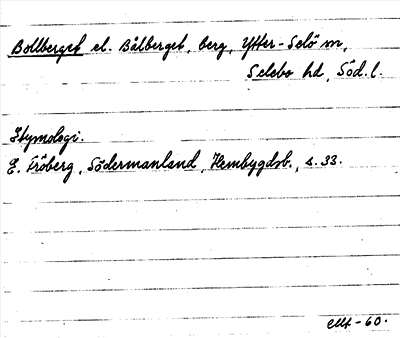 Bollberget el. Bålberget, berg, Ytter-Selö sn,
Selebo hd, Söd. l.
Etymologi.
E. Fröberg, Södermanland, Hembygdsb., s. 33.
-60.